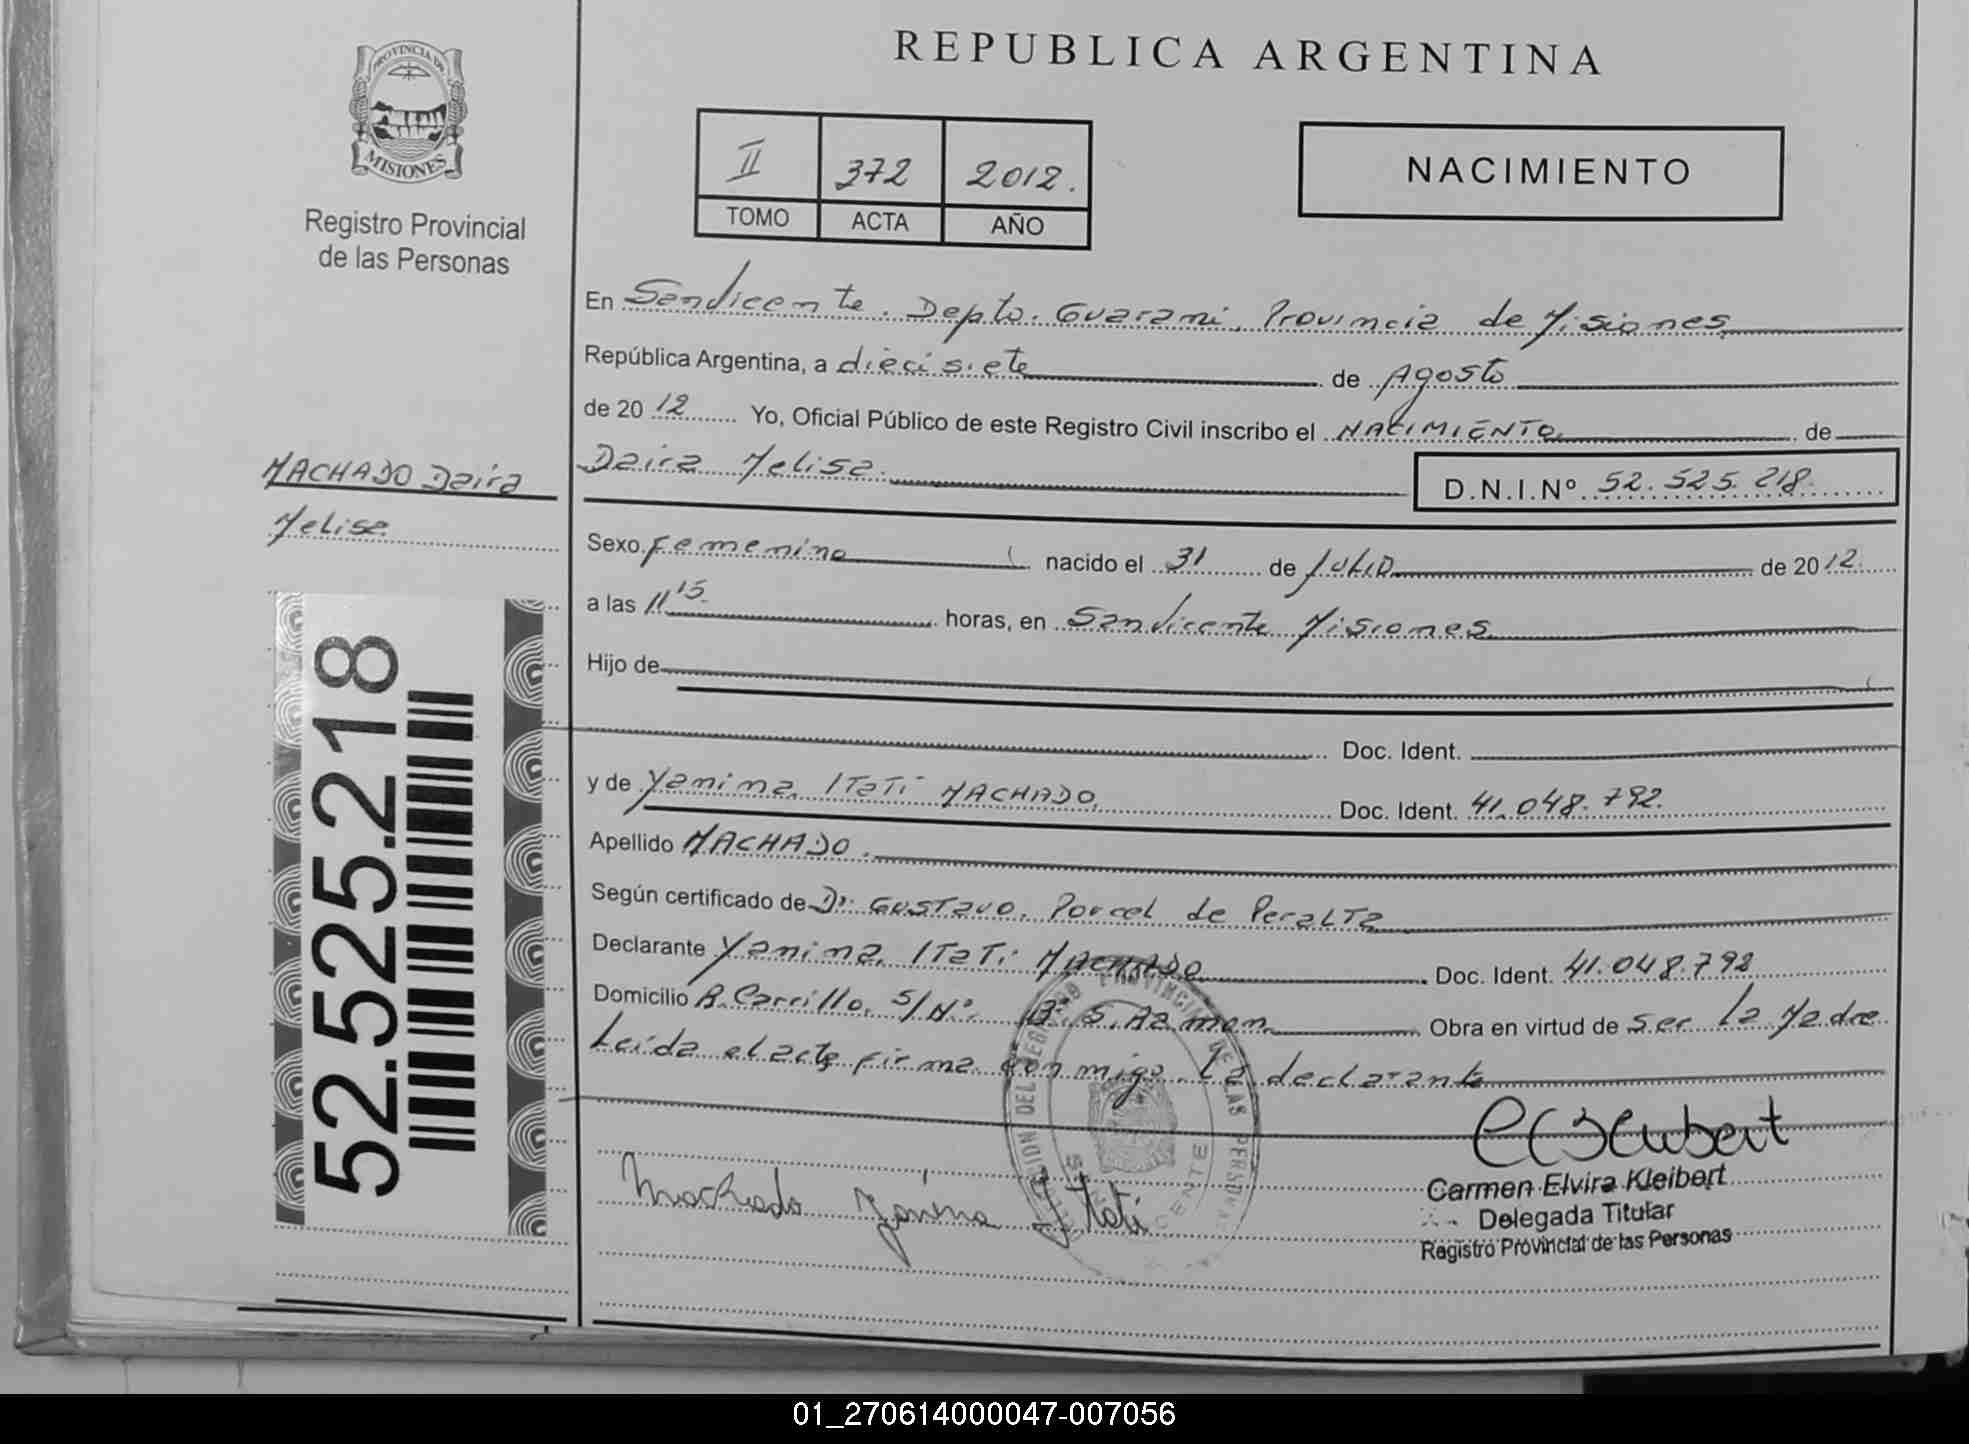 PROVINCIA DE
MISIONES
Registro Provincial
de las Personas
REPUBLICA ARGENTINA
II 372 2012.
TOMO ACTA AÑO
NACIMIENTO
En Sanvicente. Depto. Guarani. Provincia de Misiones
República Argentina, a diecisiete de Agosto
de 2012 Yo, Oficial Público de este Registro Civil inscribo el NACIMIENTO de
Daira Melisa. D.N.I.Nº 52.525.218.
MACHADO Daira
Melisa.
Sexo Femenino nacido el 31 de JULIO de 2012.
a las 11 15. horas, en Sanvicente Misiones
Hijo de
Doc. Ident.
y de Yanina Itati MACHADO Doc. Ident. 41.048.792.
Apellido MACHADO.
Según certificado de Dr. Gustavo Porcel de Peralta
Declarante Yanina Itati MACHADO Doc. Ident. 41.048.792
Domicilio R. Carrillo S/Nº. Bº. S. Ramon Obra en virtud de ser la Madre
Leida el acta firma conmigo la declarante
Machado Yanina Itati
Carmen Elvira Kleibert
Delegada Titular
Registro Provincial de las Personas
52.525.218
01_270614000047-007056